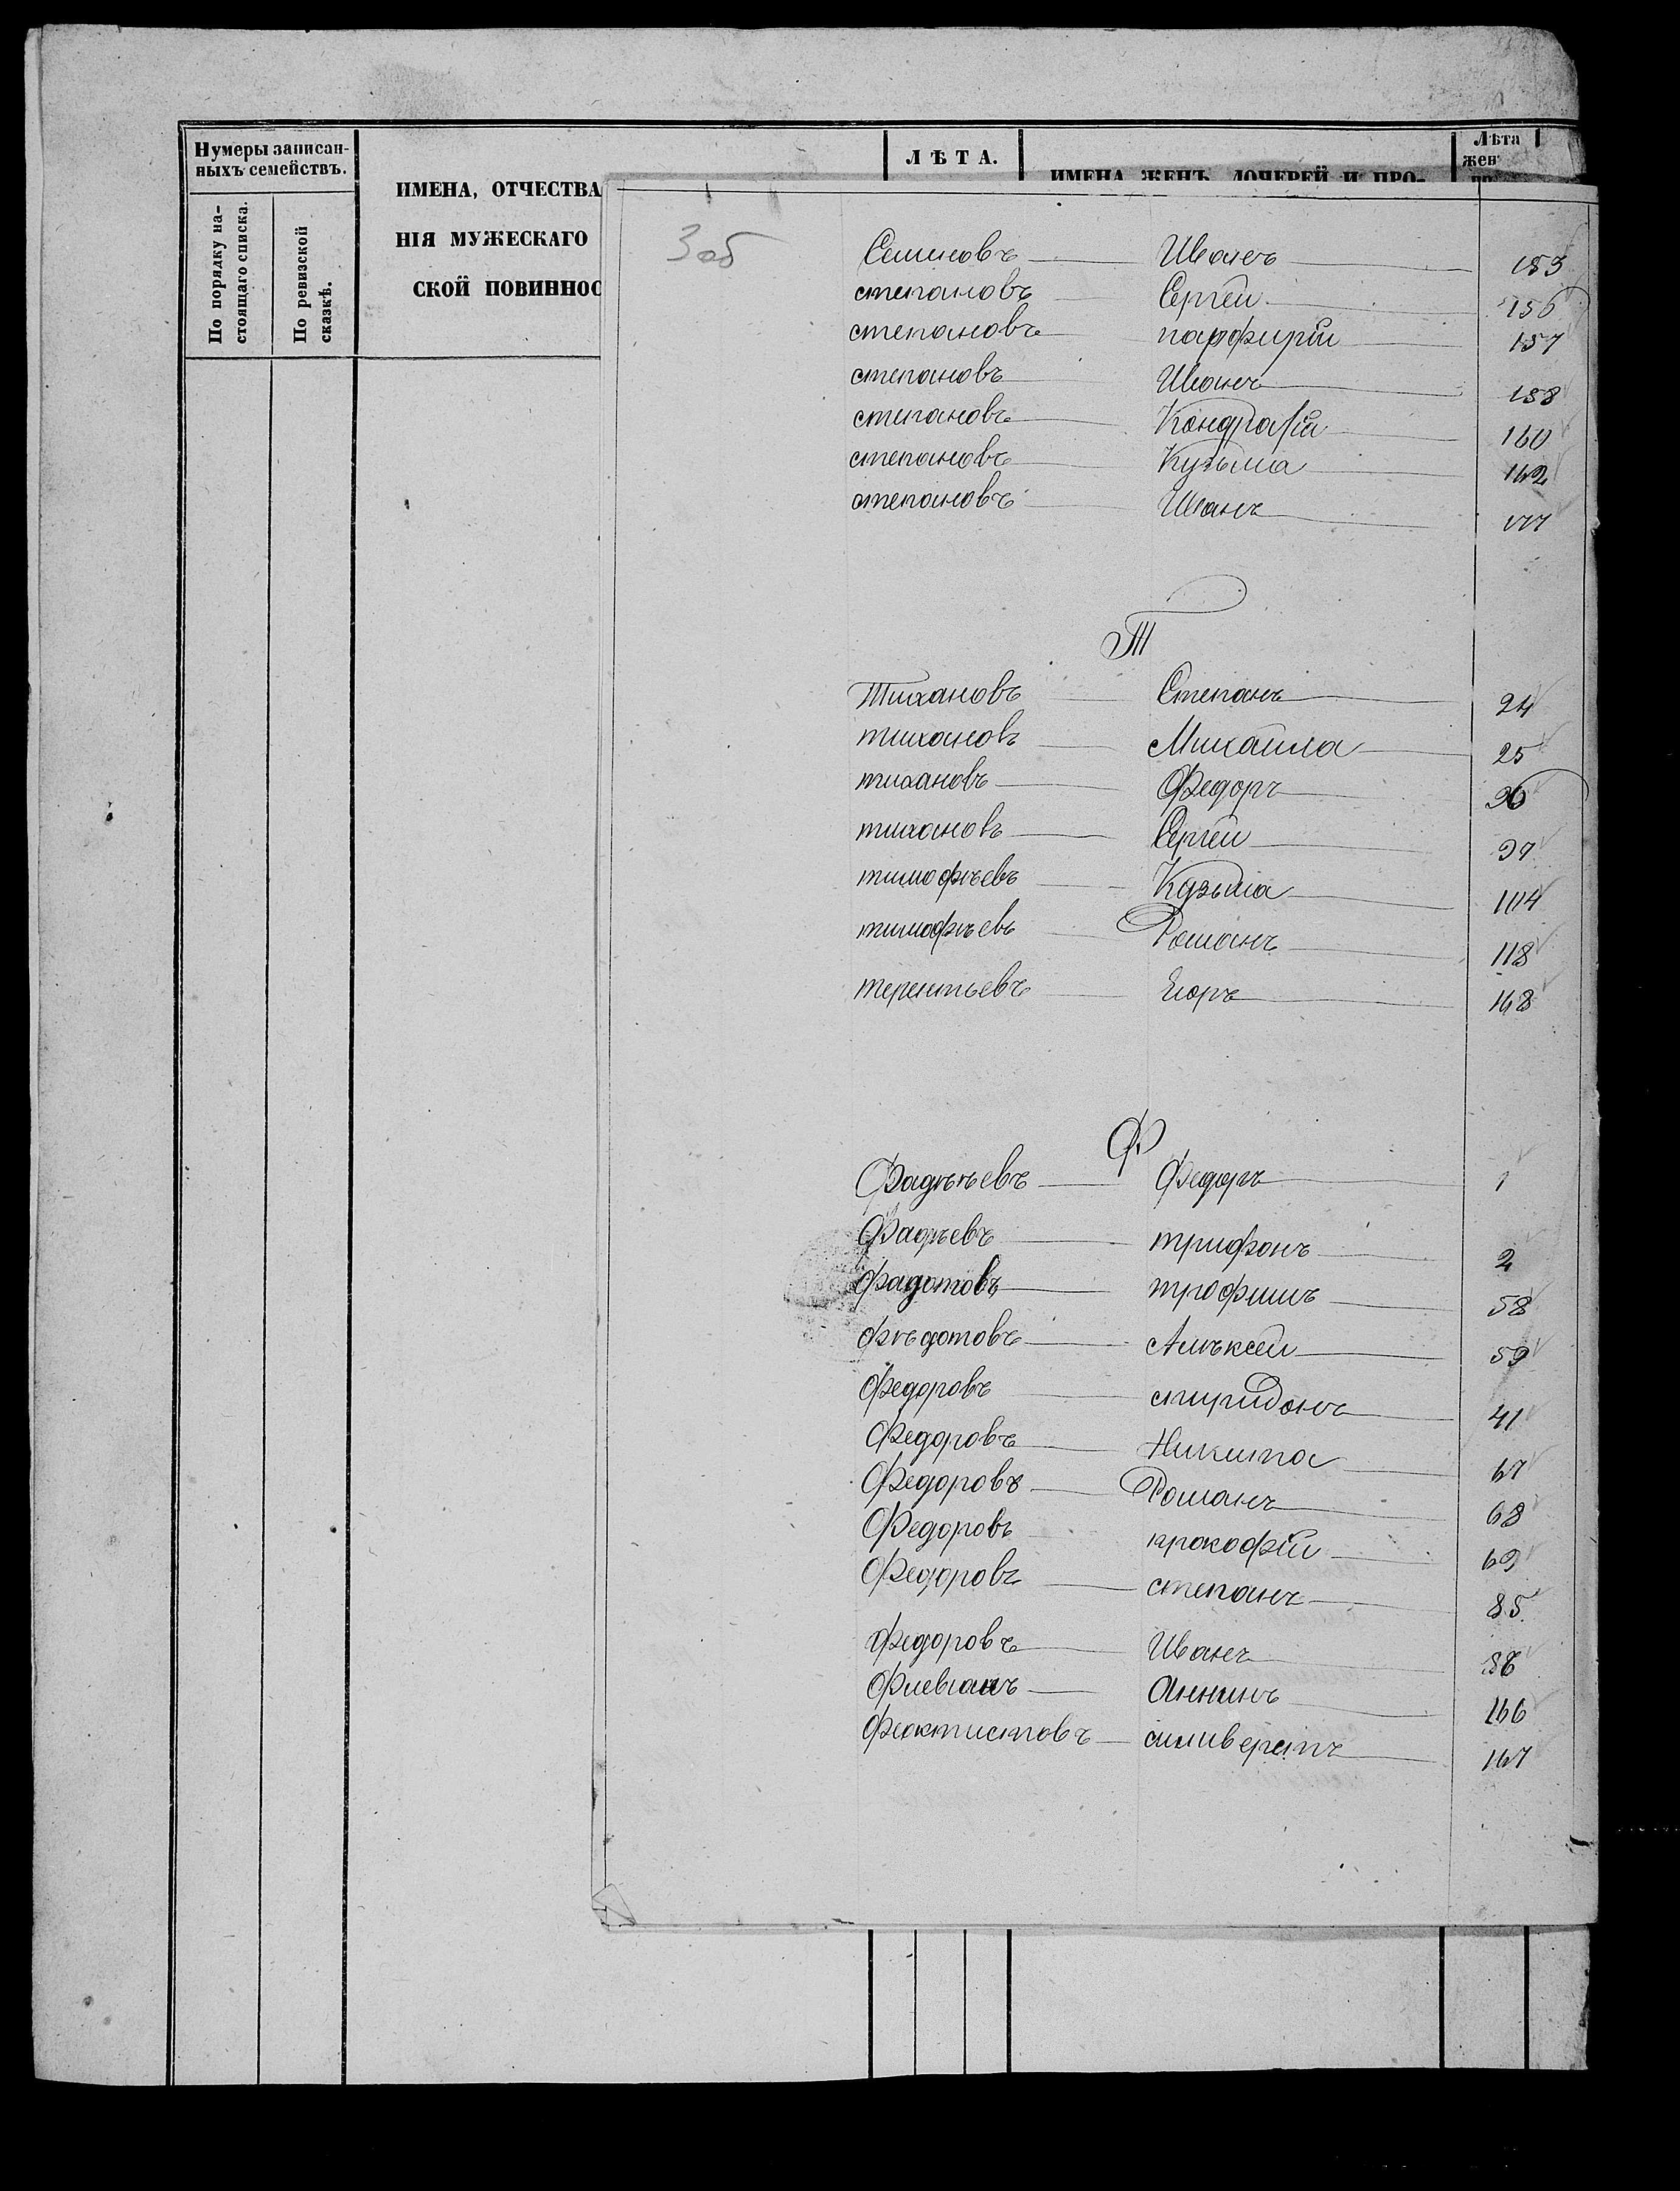 Нумеры записан-
ныхъ семействъ.
По порядку на-
стоящаго списка.
По ревизской
сказкѣ.
ИМЕНА, ОТЧЕСТВА
НІЯ МУЖЕСКАГО
СКОЙ ПОВИННОС
ЛѢТА.
ИМЕНА ЖЕНЪ, ДОЧЕРЕЙ И ПРО-
Лѣта
жен
3 об
Семиновъ Иванъ 153
степановъ Сергей 156
степановъ парфирій 157
степановъ Иванъ 158
степановъ Кондратій 160
степановъ Кузьма 162
степановъ Иванъ 177
Т
Тихановъ Степанъ 24
тихановъ Михайла 25
тихановъ Федоръ 96
тихановъ Сергей 97
тимофѣевъ Кузьма 104
тимофѣевъ Романъ 118
терентьевъ Егоръ 168
Ф
Фадѣѣевъ Федоръ 1
Фадѣевъ трифонъ 2
фадотовъ трофимъ 58
фѣдотовъ Алѣксей 59
Федоровъ спиридонъ 41
Федоровъ Никита 67
Федоровъ Романъ 68
Федоровъ прокофій 69
Федоровъ степанъ 85
Федоровъ Иванъ 86
Анкинъ 166
Феоктистовъ силиверстъ 167